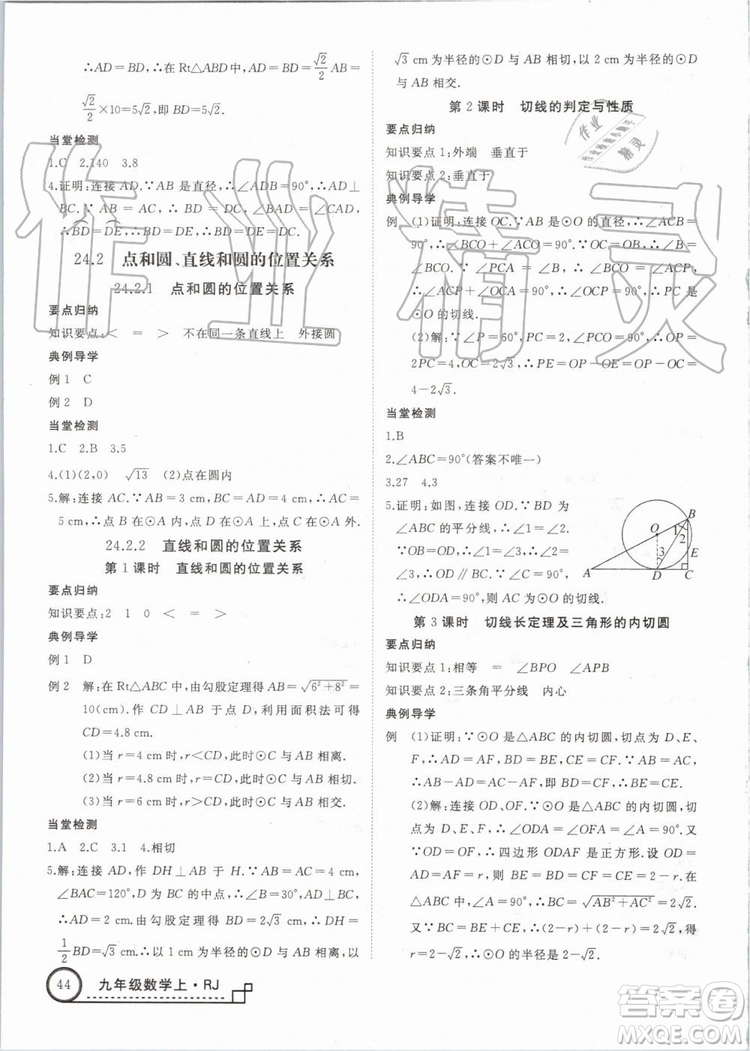 ∴AD=BD,∴在 Rt△ABD中,AD=BD=√2/2AB=
√2/2×10=5√2,即 BD=5√2.
当堂检测
1.C 2.140 3.8
4.证明:连接 AD.∵AB 是直径,∴∠ADB=90°,∴AD⊥
BC.∵AB=AC,∴BD=DC,∠BAD=∠DAC,∴
BD=DE,∴BD=DE,∴BD=DE=DC.
24.2 点和圆、直线和圆的位置关系
24.2.1 点和圆的位置关系
要点归纳
知识要点:< = > 不在同一条直线上 外接圆
典例导学
例1 C
例2 D
当堂检测
1.C 2.B 3.5
4.(1)(2,0) √13 (2)点在圆内
5.解:连接 AC.∵AB=3 cm,BC=AD=4 cm,∴AC=
5 cm,∴点 B 在⊙A 内,点 D 在⊙A 上,点 C 在⊙A 外.
24.2.2 直线和圆的位置关系
第1课时 直线和圆的位置关系
要点归纳
知识要点:2 1 0 < = >
典例导学
例1 D
例2 解:在 Rt△ABC 中,由勾股定理得 AB=√(6²+8²)=
10(cm).作 CD⊥AB 于点 D,利用面积法可得
CD=4.8 cm.
(1)当 r=4 cm 时,r<CD,此时⊙C 与 AB 相离.
(2)当 r=4.8 cm 时,r=CD,此时⊙C 与 AB 相切.
(3)当 r=6 cm 时,r>CD,此时⊙C 与 AB 相交.
当堂检测
1.A 2.C 3.1 4.相切
5.解:连接 AD,作 DH⊥AB 于 H.∵AB=AC=4 cm,
∠BAC=120°,D 为 BC 的中点,∴∠B=30°,AD⊥BC,
∴AD=2 cm,由勾股定理得 BD=2√3 cm,∴DH=
1/2BD=√3 cm;∴以 1 cm 为半径的⊙D 与 AB 相离,以
√3 cm 为半径的⊙D 与 AB 相切,以 2 cm 为半径的
⊙D 与 AB 相交.
第2课时 切线的判定与性质
要点归纳
知识要点1:外端 垂直于
知识要点2:垂直于
典例导学
例 (1)证明:连接 OC.∵AB 是⊙O 的直径,∴∠ACB=
90°,∴∠BCO+∠ACO=90°.∵OB=OC,
∴∠B=∠BCO.∵∠PCA=∠B,∴∠BCO=
∠PCA,∴∠PCA+∠ACO=90°,即∠OCP=90°,
∴PC 是⊙O 的切线.
(2)解:∵∠P=60°,PC=2,∠PCO=90°,∴OP=
2PC=4,∴OC=2√3,∴OA=2√3,∴PA=
4-2√3.
当堂检测
1.B
2.∠ABC=90°(答案不唯一)
3.27 4.3
5.证明:如图,连接 OD.∵BD 为
∠ABC 的平分线,∴∠1=∠2.
∵OB=OD,∴∠1=∠3,∴∠2=
∠3,∴OD∥BC.∵∠C=90°,
∴∠ODA=90°,则 AC 为⊙O 的切线.
A B C D E O 1 2 3
第3课时 切线长定理及三角形的内切圆
要点归纳
知识要点1:相等 ∠BPO ∠APB
知识要点2:三条角平分线 内心
典例导学
例 (1)证明:∵⊙O 是△ABC 的内切圆,切点为 D、E、
F,∴AD=AF,BD=BE,CE=CF.∵AB=AC,
∴AB-AD=AC-AF,即 BD=CF,∴BE=CE.
(2)解:连接 OD、OF.∵⊙O 是△ABC 的内切圆,
切点为 D、E、F,∴∠ODA=∠OFA=∠A=90°.
又∵OD=OF,∴四边形 ODAF 是正方形.设
OD=AD=AF=r,则 BE=BD=CF=CE=2-
r.在△ABC 中,∠A=90°,∴BC=√(AB²+AC²)=2√2.
又∵BC=BE+CE,∴(2-r)+(2-r)=2√2,
得 r=2-√2,∴⊙O 的半径是 2-√2.
44 九年级数学上·RJ
作业精灵
答案圈
MXQE.COM